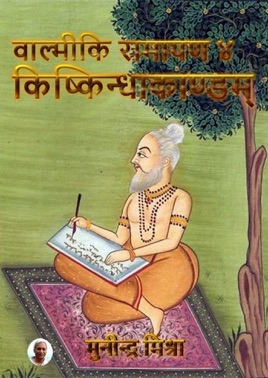 वाल्मीकि रामायण ४
किष्किन्धाकाण्डम्
मुनीन्द्र मिश्रा